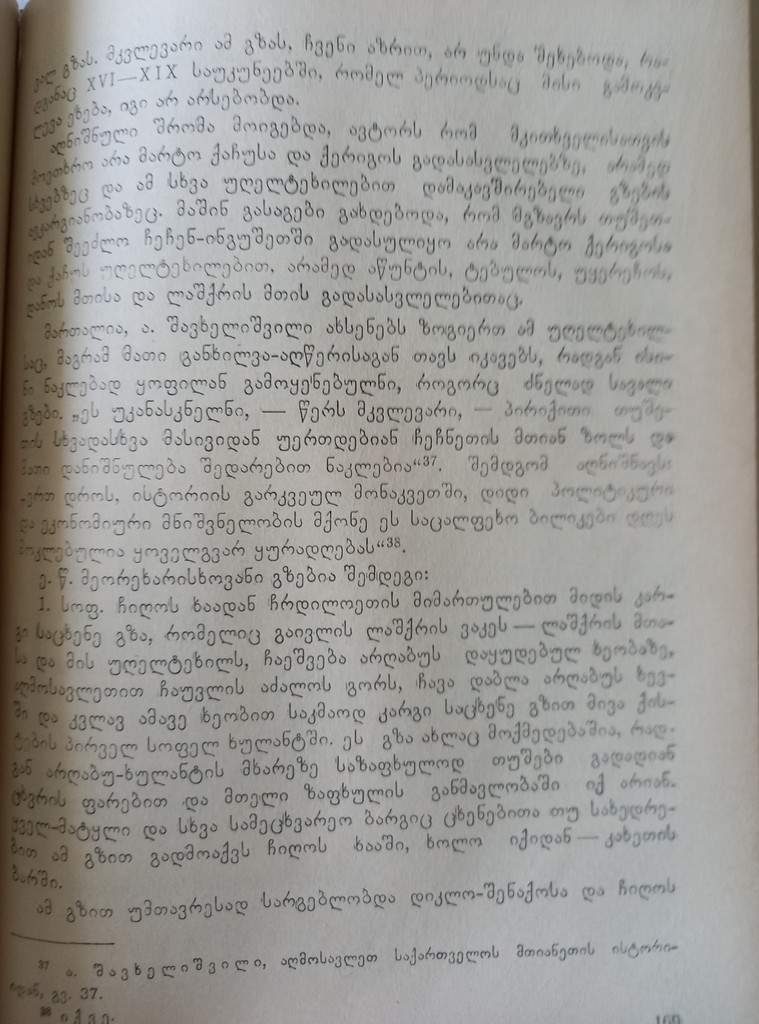 ვალ გზას. მკვლევარი ამ გზას, ჩვენი აზრით, არ უნდა შეხებოდა, რა-
დგანაც XVI—XIX საუკუნეებში, რომელ პერიოდსაც მისი გამოკვ-
ლევა ეხება, იგი არ არსებობდა.
აღნიშნული შრომა მოიგებდა, ავტორს რომ მკითხველისათვის
მოეთხრო არა მარტო ქაჩუსა და ქერიგოს გადასასვლელებზე, არამედ
სხვებზეც და ამ სხვა უღელტეხილებით დამაკავშირებელი გზების
ავკარგიანობაზეც. მაშინ გასაგები გახდებოდა, რომ მგზავრს თუშეთ-
იდან შეეძლო ჩეჩენ-ინგუშეთში გადასულიყო არა მარტო ქერიგოსა
და ქაჩოს უღელტეხილებით, არამედ აწუნტის, ტებულოს, უყერეჩოს,
დანოს მთისა და ლაშქრის მთის გადასასვლელებითაც.
მართალია, ა. შავხელიშვილი ახსენებს ზოგიერთ ამ უღელტეხილ-
საც, მაგრამ მათი განხილვა-აღწერისაგან თავს იკავებს, რადგან ისი-
ნი ნაკლებად ყოფილან გამოყენებულნი, როგორც ძნელად სავალი
გზები. „ეს უკანასკნელნი, — წერს მკვლევარი, — პირიქითი თუშე-
თის სხვადასხვა მასივიდან უერთდებიან ჩეჩნეთის მთიან ზოლს და
მათი დანიშნულება შედარებით ნაკლებია“³⁷. შემდგომ აღნიშნავს:
„ერთ დროს, ისტორიის გარკვეულ მონაკვეთში, დიდი პოლიტიკური
და ეკონომიური მნიშვნელობის მქონე ეს საცალფეხო ბილიკები დღეს
მოკლებულია ყოველგვარ ყურადღებას“³⁸.
ე. წ. მეორეხარისხოვანი გზებია შემდეგი:
1. სოფ. ჩიღოს ხაადან ჩრდილოეთის მიმართულებით მიდის კარ-
გი საცხენე გზა, რომელიც გაივლის ლაშქრის ვაკეს — ლაშქრის მთა-
სა და მის უღელტეხილს, ჩაეშვება არღაბუს დაყუდებულ ხეობაზე,
აღმოსავლეთით ჩაუვლის აძალოს გორს, ჩავა დაბლა არღაბუს ხევ-
ში და კვლავ ამავე ხეობით საკმაოდ კარგი საცხენე გზით მივა ქის-
ტების პირველ სოფელ ხულანტში. ეს გზა ახლაც მოქმედებაშია, რად-
გან არღაბუ-ხულანტის მხარეზე საზაფხულოდ თუშები გადადიან
ცხვრის ფარებით და მთელი ზაფხულის განმავლობაში იქ არიან.
ყველ-მატყლი და სხვა სამეცხვარეო ბარგიც ცხენებითა თუ სახედრე-
ბით ამ გზით გადმოაქვს ჩიღოს ხააში, ხოლო იქიდან — კახეთის
ბარში.
ამ გზით უმთავრესად სარგებლობდა დიკლო-შენაქოსა და ჩიღოს
³⁷ ა. შავხელიშვილი, აღმოსავლეთ საქართველოს მთიანეთის ისტორი-
იდან, გვ. 37.
³⁸ იქვე.
169